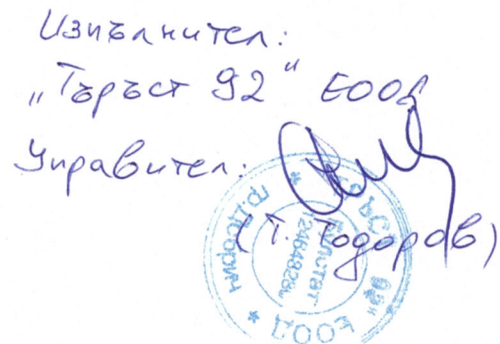 Изпълнител:
„Търъст 92“ ЕООД
Управител:
(Т. Тодоров)
ЕООД